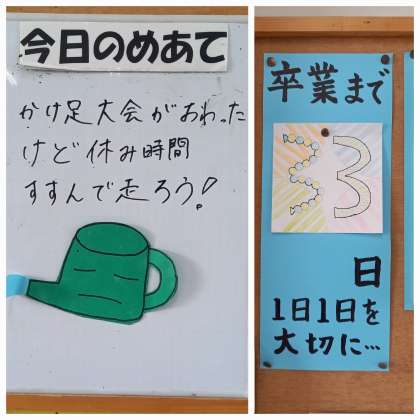 今日のめあて
かけ足大会がおわった
けど休み時間
すすんで走ろう!
卒業まで
33
日
1日1日を
大切に…